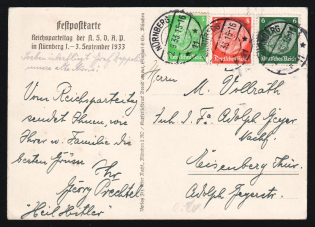 Festpostkarte
Reichsparteitag der N.S.D.A.P.
in Nürnberg 1.–3. September 1933
Vom Reichsparteitag
sendet Ihnen, wie
Ihrer w. Familie die
besten Grüsse Ihr
Georg Prechtel
"Heil Hitler"
NÜRNBERG
Deutsches Reich
Deutsches Reich
6
Deutsches Reich
Herrn M. Vollrath
Inh. d. Fa Adolph Geyer
Nachf.
Eisenberg Thür.
Adolph Geyerstr.